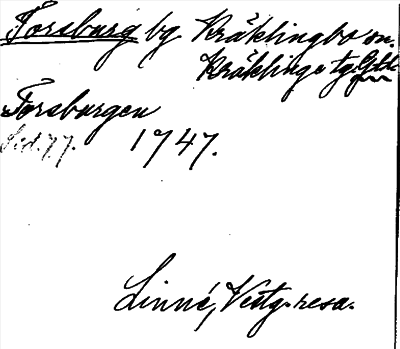 Torsburg bg Kräklingbo sn.
Kräklinge tg Gtld
Torsburgen
Sid. 77. 1747.
Linné, Vestg. resa.